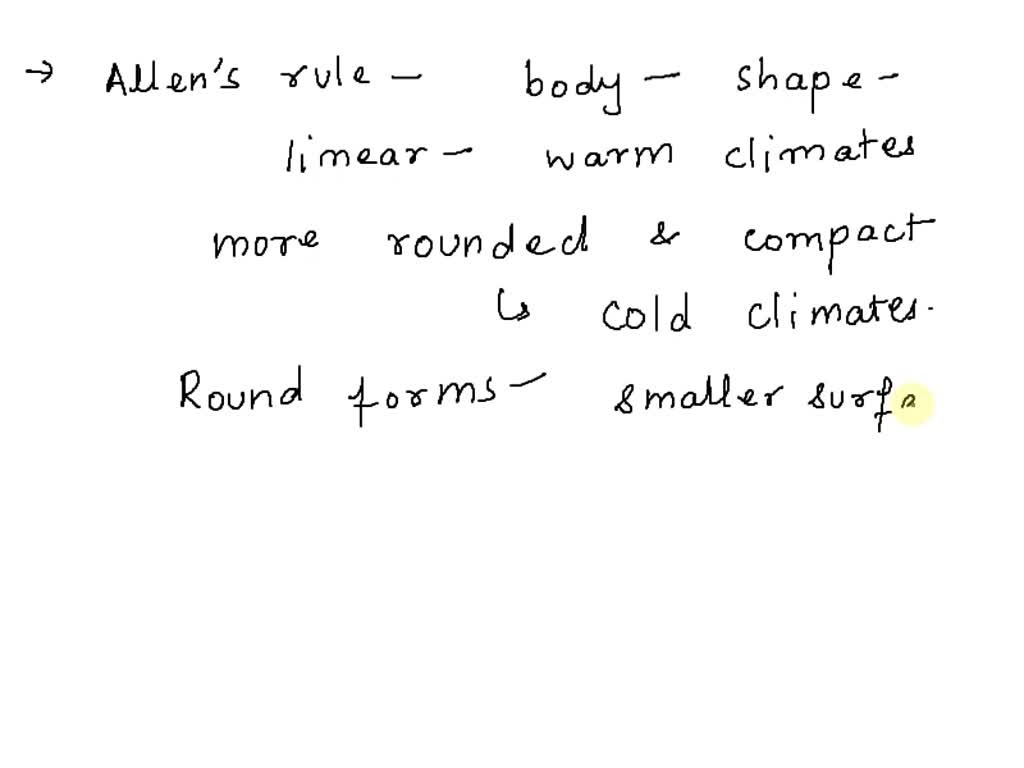 → Allen's rule - body - shape -
linear - warm climates
more rounded & compact
↳ cold climates.
Round forms - smaller surfa